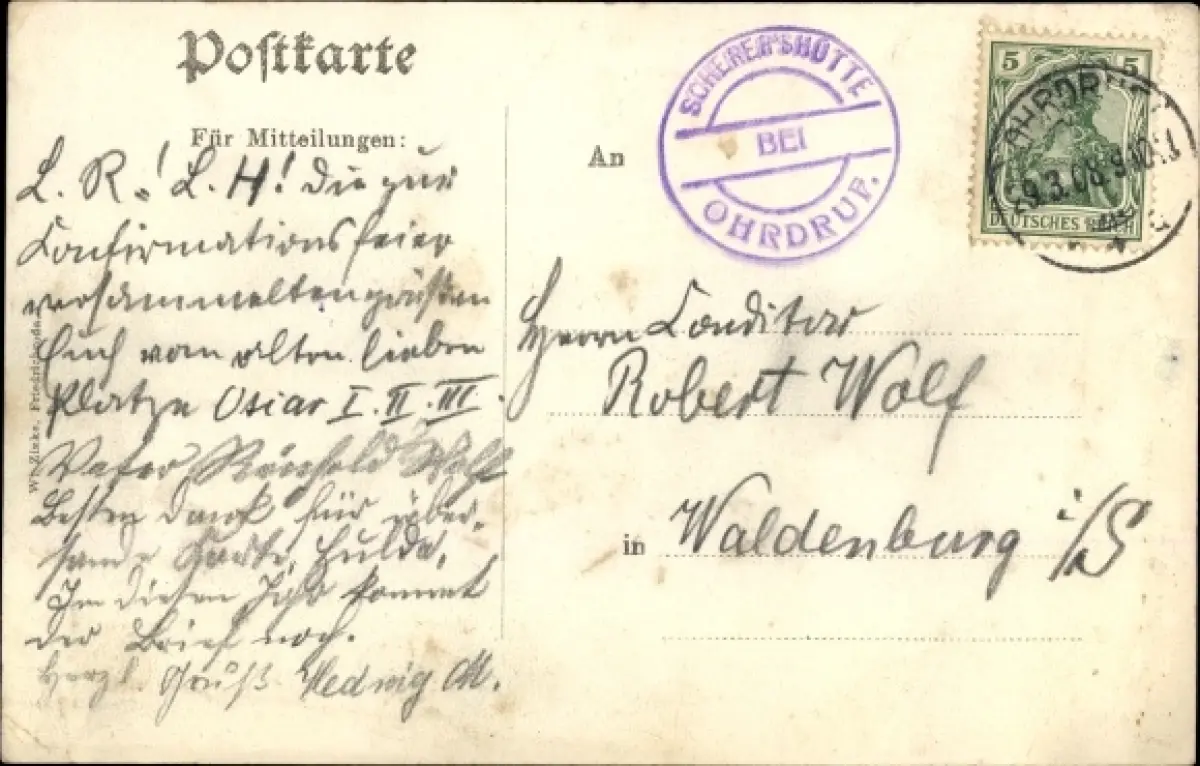 Postkarte
Für Mitteilungen:
L. R.! L. H! Die zur
Confirmationsfeier
versammelten grüßen
Euch vom alten lieben
Platze Oscar I. II. III.
Vater Reinhold Wolf
Besten Dank für über-
sandte Karte, Hulda.
In diesen Tagen kommt
der Brief noch.
Herzl. Gruß Hedwig M.
An
SCHERERSHÜTTE
BEI
OHRDRUF.
5 5
DEUTSCHES REICH
OHRDRUF
29.3.08.9-10.V
Herrn Conditor
Robert Wolf
in Waldenburg i/S